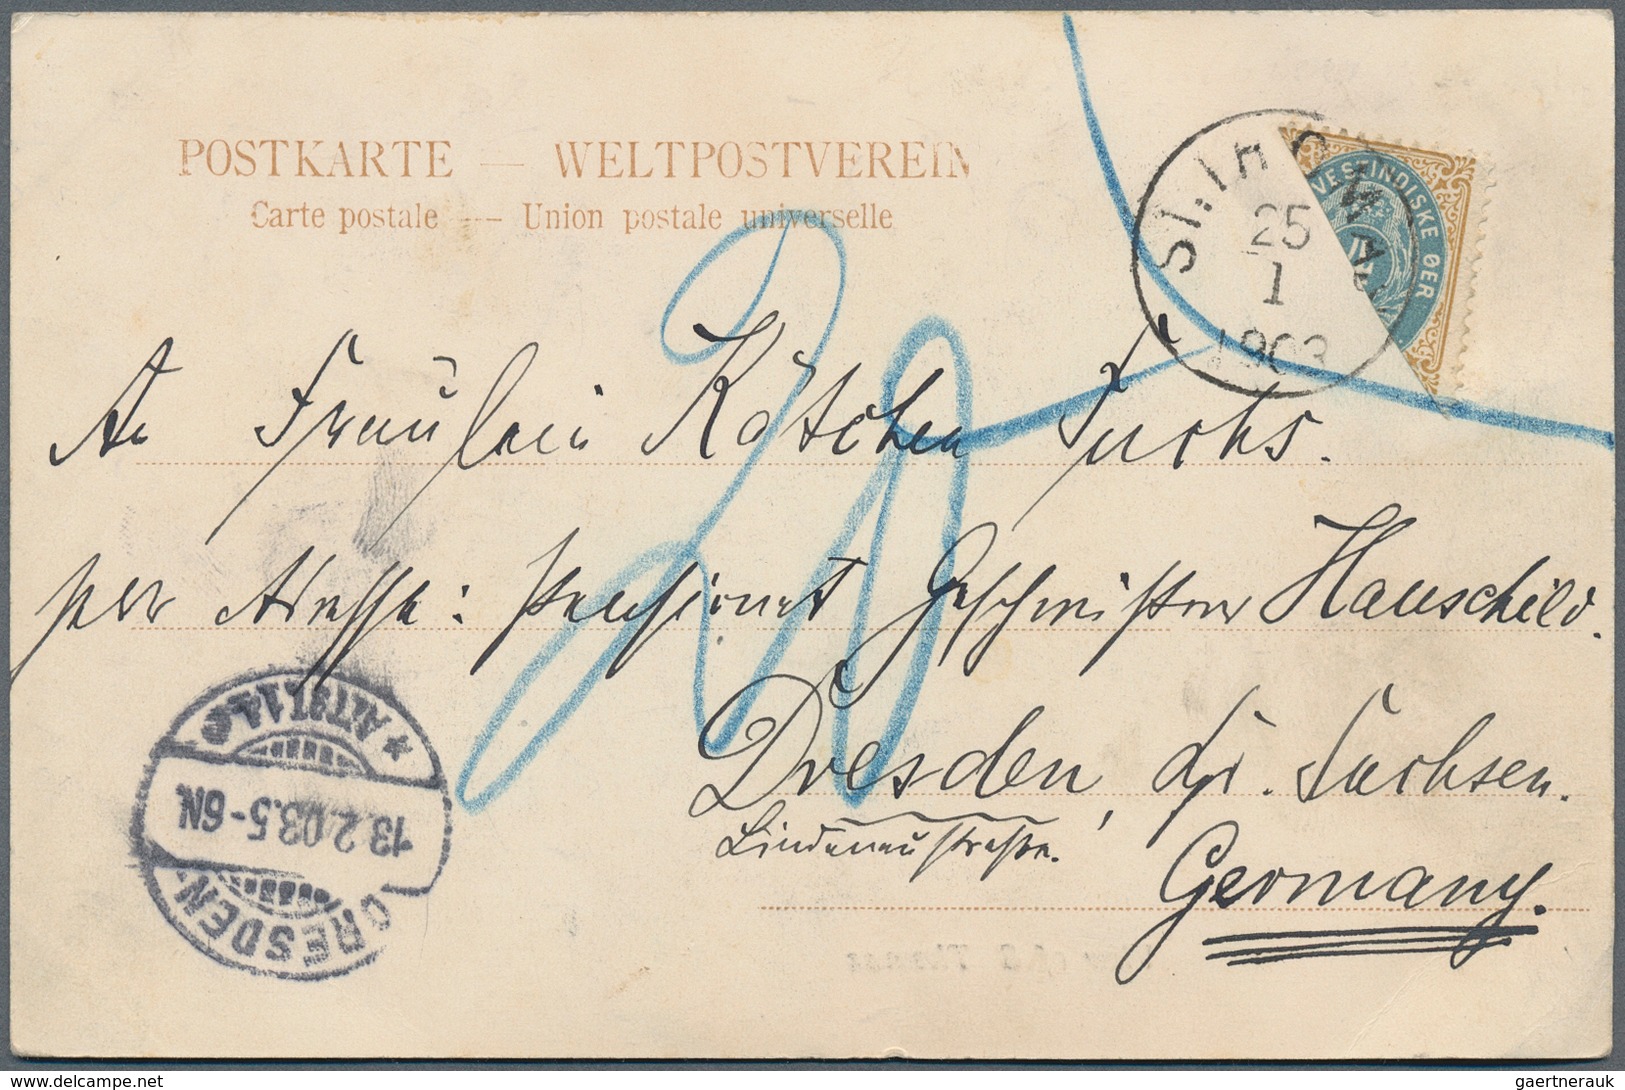 POSTKARTE — WELTPOSTVEREIN
Carte postale — Union postale universelle
St. THOMAS
25
1
1903
VESTINDISKE ØER
4
20
An Fräulein Kätchen Fuchs.
per Adresse: Pensionat Geschwister Hauschild.
Dresden, Kgr. Sachsen.
Lindenaustraße.
Germany.
DRESDEN
13.2.03.5-6N.
* ALTST. 1
delcampe.net
gaertnerauk